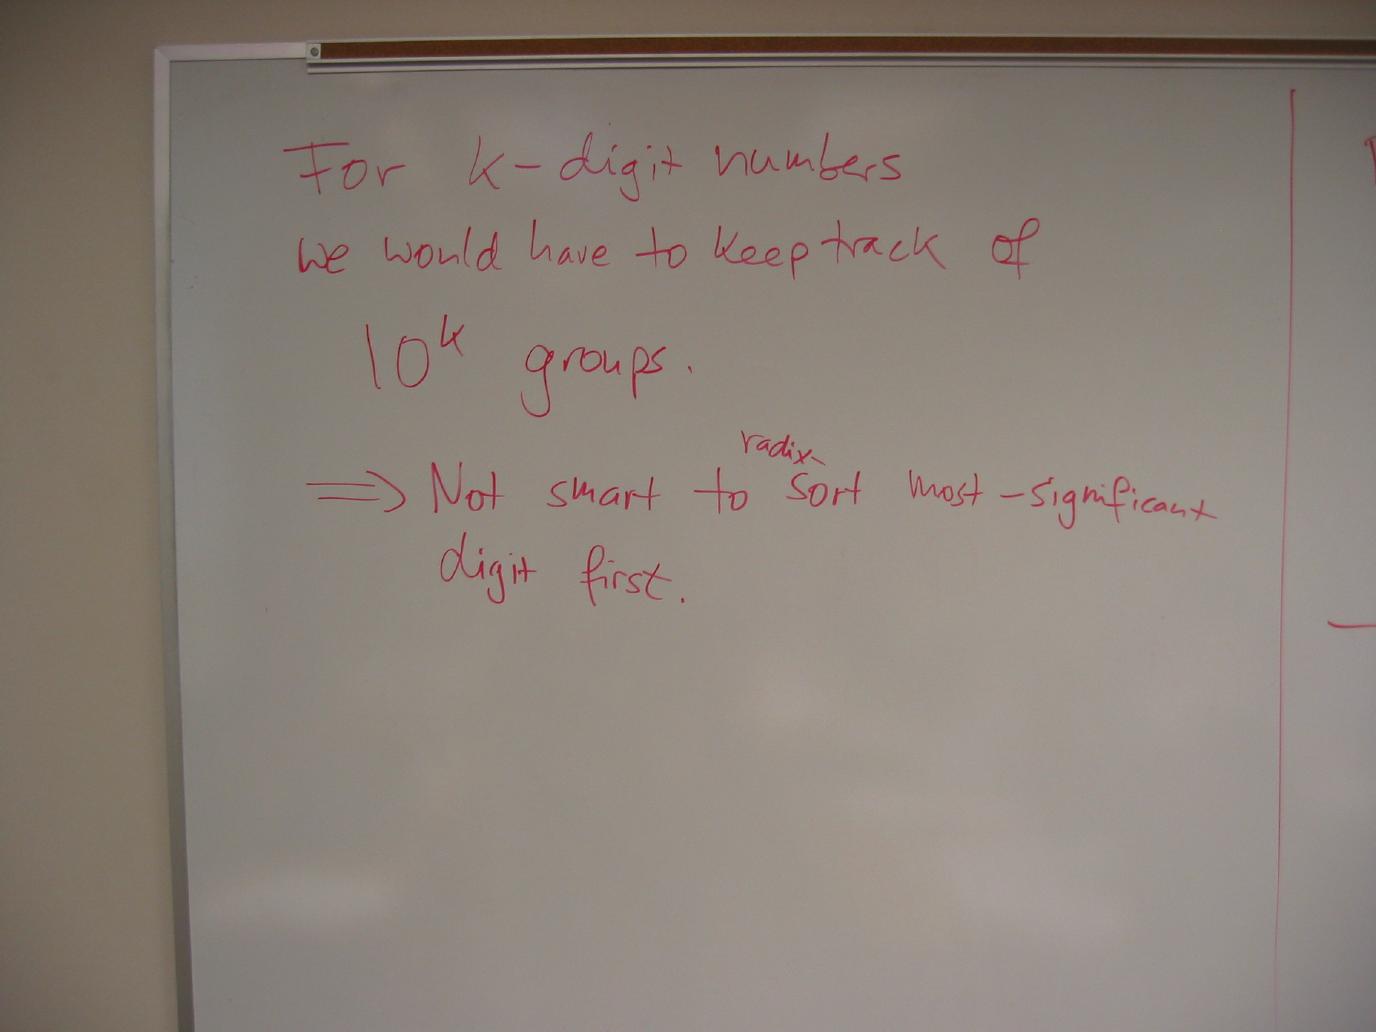 For k-digit numbers
we would have to keep track of
10^k groups.
⇒ Not smart to radix-sort most-significant
digit first.